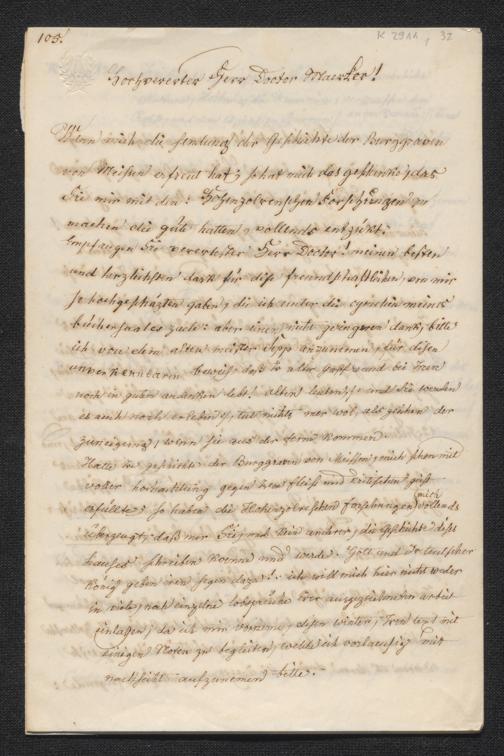 103.
K 2911, 32
Hochvererter Herr Doctor Maerker!
Wenn mich die sendung der Geschichte der Burggraven
von Meissen erfreut hat, so hat mich das geschenke, das
Sie mir mit den: Hohenzolrenschen Forschungen zu
machen die güte hatten, vollends entzükt.
Empfangen Sie verertester Herr Doctor! meinen besten
und herzlichsten dank für dise freundschaftlichen, von mir
so hochgeschazten gaben, die ich unter die cymelien meines
büchersaales zäle: aber einen nicht geringeren dank, bitte
ich von dem alten meister Sepp anzunemen, für disen
unverkennbaren beweis, daß er
noch in guten andenken lebt. alten leuten, und Sie werden
es auch noch erleben, tut nichts mer wol, als zeichen der
zuneigung, wenn sie aus der ferne kommen.
Hatte die geschichte der Burggraven von Meissen, mich schon mit
voller hochachtung gegen iren fleiß und critischen geist
erfüllt: so haben die Hohenzolreschen forschungen mich vollends
überzeugt, daß nur Sie, und kein andrer, die geschichte dises
hauses schreiben könne und werde. Gott und der teutscher
König geben iren segen dazu! ich will mich hier nicht weder
in viele, noch einzelne lobsprüche irer ausgezeichneten arbeit
einlaßen, da ich mir vorneme, disen winter, iren text mit
einigen Noten zu begleiten, welche ich vorlaeufig mit
nachsicht aufzunemen bitte.